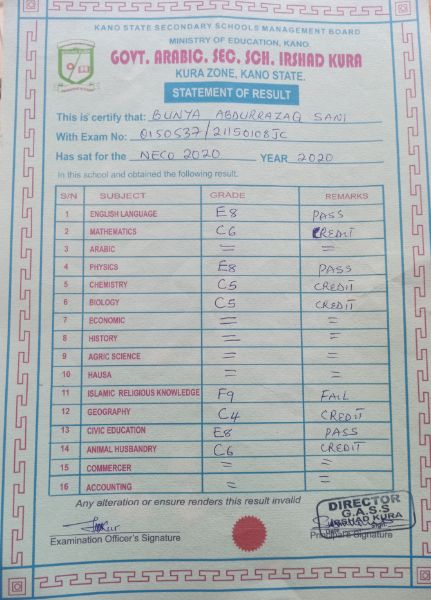 KANO STATE SECONDARY SCHOOLS MANAGEMENT BOARD
MINISTRY OF EDUCATION, KANO.
GOVT. ARABIC. SEC. SCH. IRSHAD KURA
KURA ZONE, KANO STATE.
STATEMENT OF RESULT
This is certify that: BUNYA ABDURRAZAQ SANI
With Exam No: 0150537/21150108JC
Has sat for the NECO 2020 YEAR 2020
In this school and obtained the following result.
S/N SUBJECT GRADE REMARKS
1 ENGLISH LANGUAGE E8 PASS
2 MATHEMATICS C6 CREDIT
3 ARABIC = =
4 PHYSICS E8 PASS
5 CHEMISTRY C5 CREDIT
6 BIOLOGY C5 CREDIT
7 ECONOMIC = =
8 HISTORY = =
9 AGRIC SCIENCE = =
10 HAUSA = =
11 ISLAMIC RELIGIOUS KNOWLEDGE F9 FAIL
12 GEOGRAPHY C4 CREDIT
13 CIVIC EDUCATION E8 PASS
14 ANIMAL HUSBANDRY C6 CREDIT
15 COMMERCER = =
16 ACCOUNTING = =
Any alteration or ensure renders this result invalid
DIRECTOR
G.A.S.S
IRSHAD KURA
Sign:
Examination Officer's Signature Principal's Signature